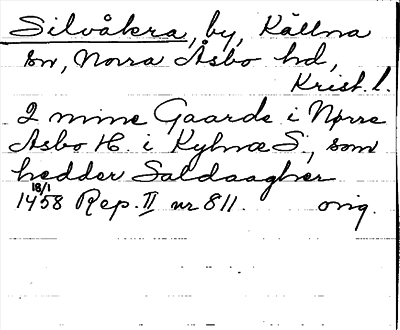 Silvåkra, by, Källna
sn, Norra Åsbo hd,
Krist. l.
2 mine Gaarde i Nørre
Asbo H. i Kylnæ S., som
hedder
18/1
1458 Rep. II nr 811. orig.